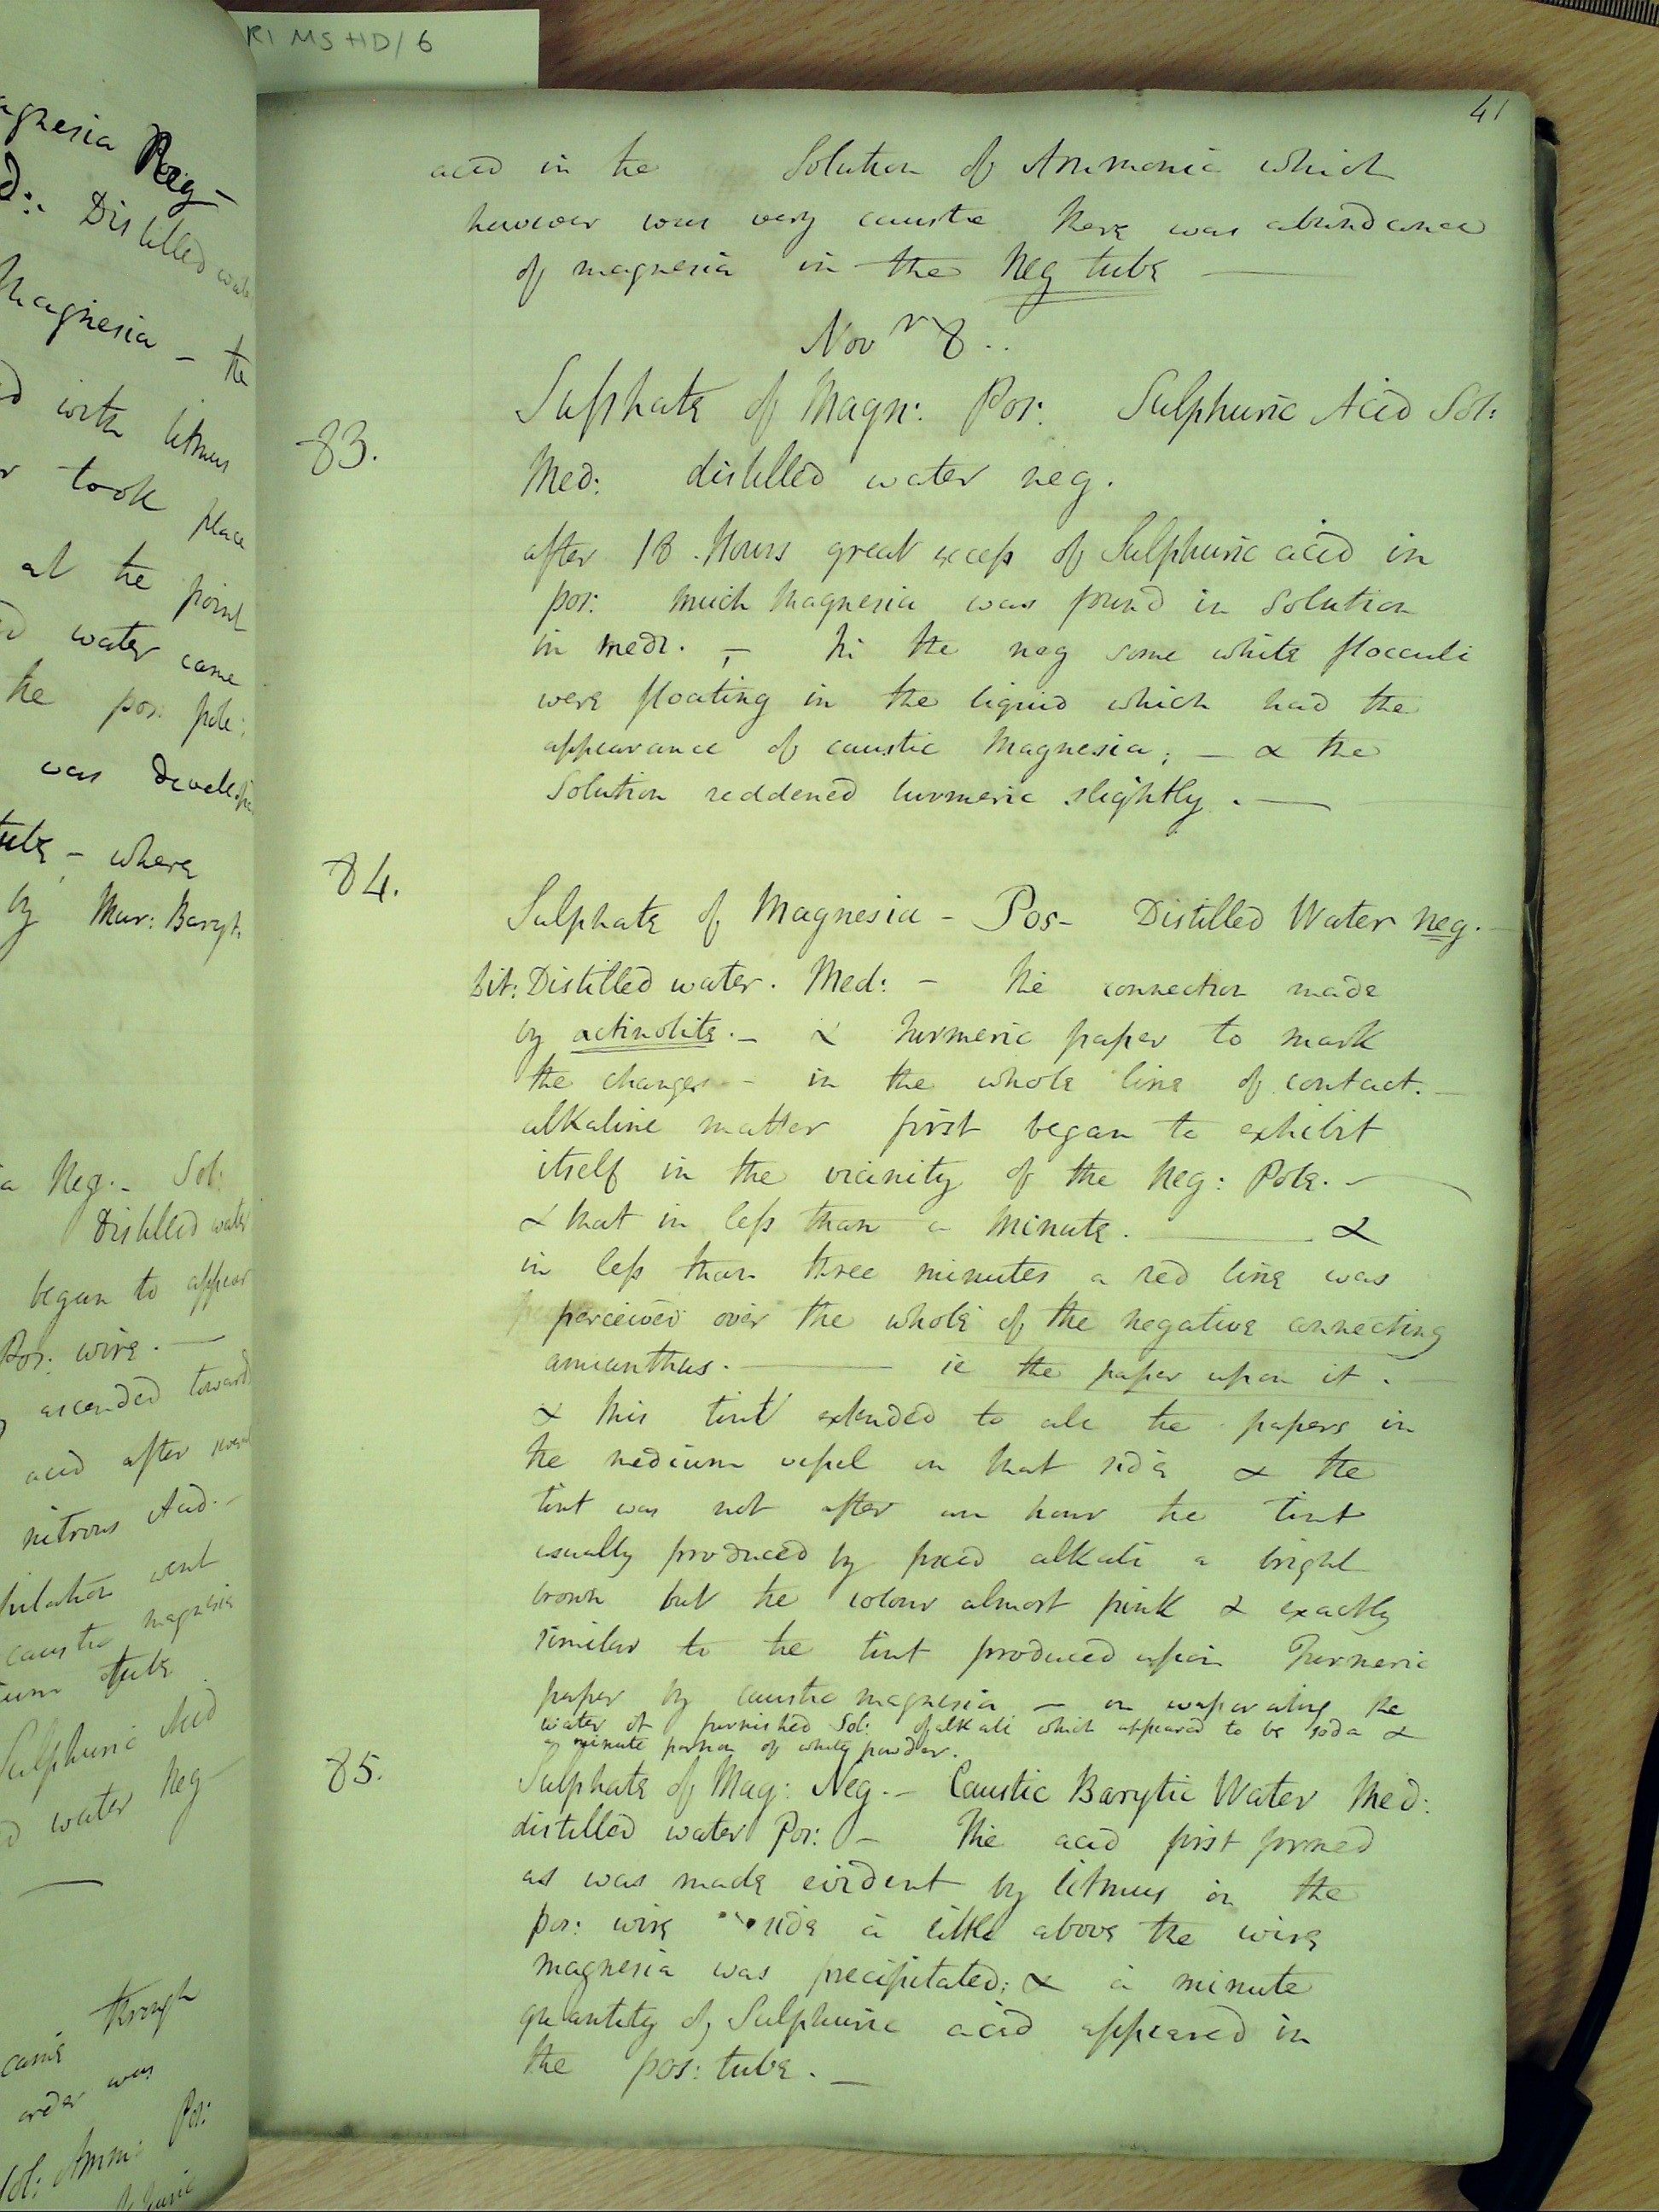 RI MS HD/6
agnesia Neg -
Distilled wate
Magnesia - the
with litmus
took place
at the point
water came
the pos: pole:
was develope
tube - where
by Mur: Baryt
Neg. - Sol:
Distilled water
began to appear
Pos: wire. —
ascended toward
acid after
nitrous Acid. -
went
caustic magnesia
tube
Sulphuric Acid
water Neg -
through
came
order was
Sol: Amm: Pos:
41
acid in the Solution of Ammonia which
however was very caustic there was abundance
of magnesia in the Neg tube —
Novr 8..
83.
Sulphate of Magn: Pos: Sulphuric Acid Sol:
Med: distilled water neg.
after 18 Hours great excess of Sulphuric acid in
pos: much Magnesia was found in Solution
in med: - In the neg some white flocculi
were floating in the liquid which had the
appearance of caustic Magnesia; - & the
Solution reddened turmeric slightly. —
84.
Sulphate of Magnesia - Pos - Distilled Water neg. -
Dit: Distilled water. Med: - The connection made
by actinolite. - & turmeric paper to mark
the changes - in the whole line of contact. -
alkaline matter first began to exhibit
itself in the vicinity of the Neg: Pole. -
& that in less than a Minute. — &
in less than three minutes a red line was
perceived over the whole of the negative connecting
amianthus. — ie the paper upon it. -
& this tint extended to all the papers in
the medium vessel on that side & the
tint was not after an hour the tint
usually produced by fixed alkali a bright
brown but the colour almost pink & exactly
similar to the tint produced upon Turmeric
paper by caustic magnesia - on evaporating the
water it furnished Sol: of alkali which appeared to be soda &
a minute portion of white powder.
85.
Sulphate of Mag: Neg. - Caustic Barytic Water Med:
distilled water Pos: - The acid first formed
as was made evident by litmus in the
pos: wire side a little above the wire
magnesia was precipitated; & a minute
quantity of Sulphuric acid appeared in
the pos: tube. -